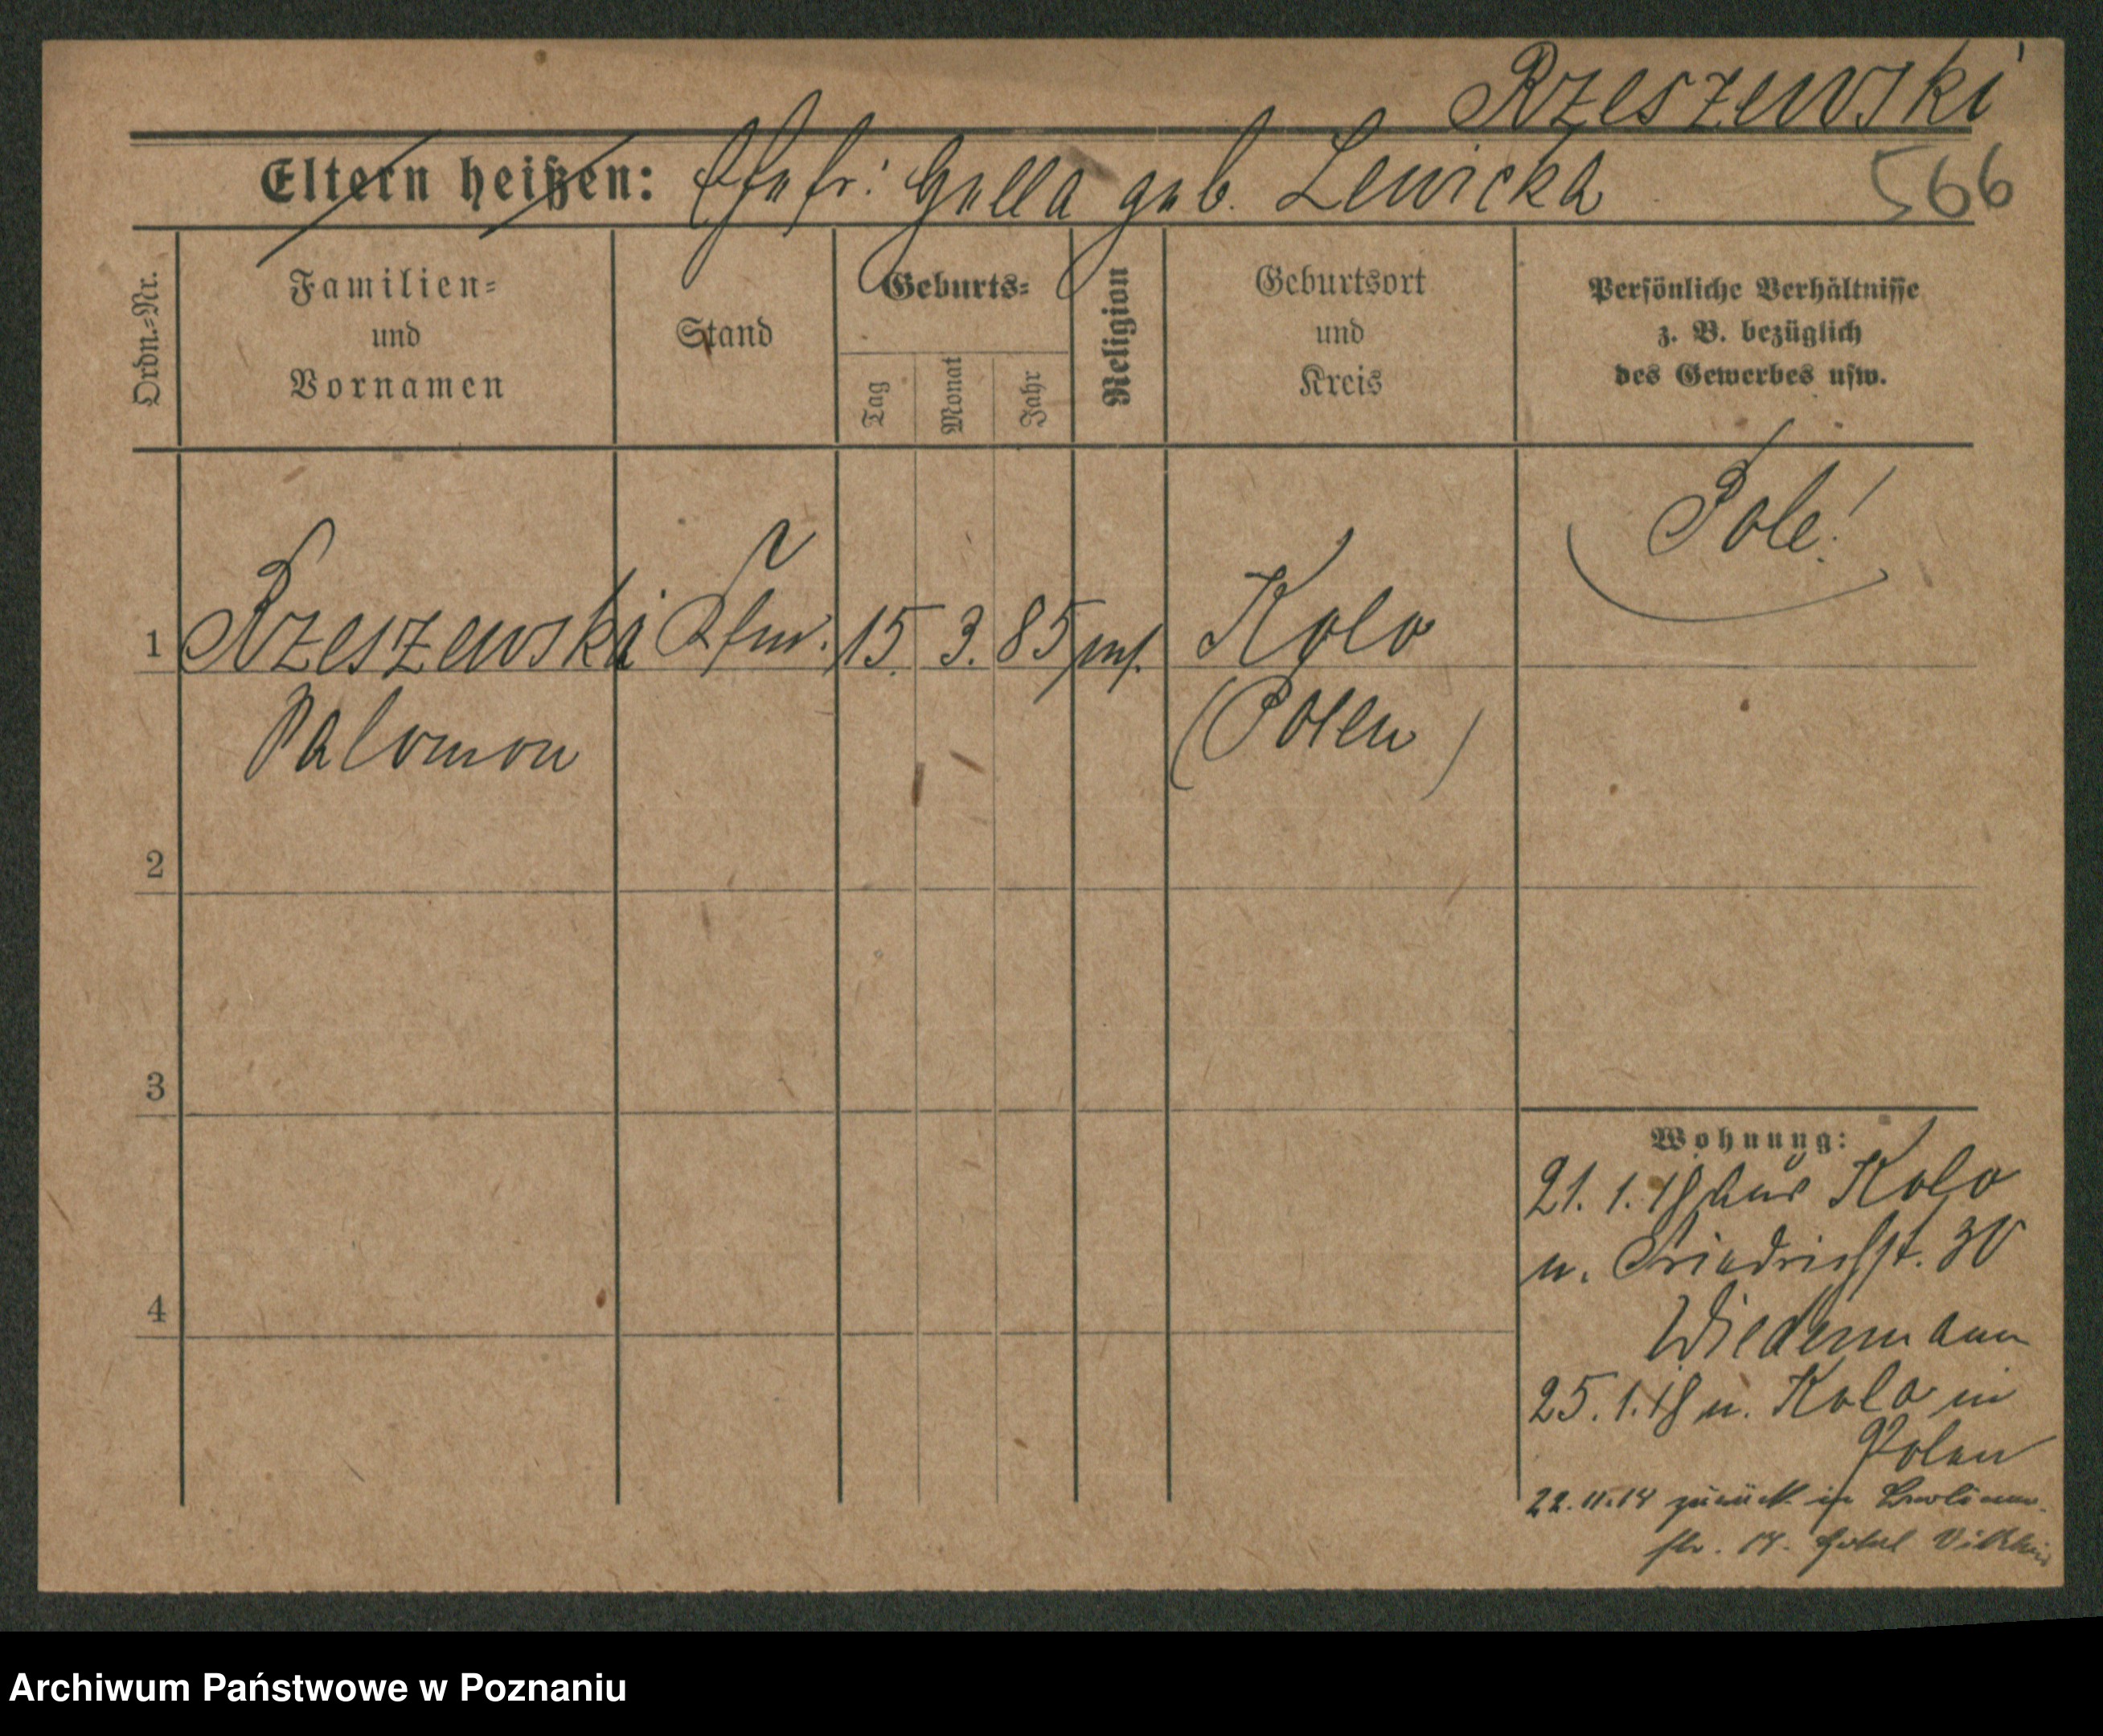 Rzeszewski
Eltern heißen: Ehefr: Hella geb. Lewicka 566
Ordn.=Nr.
Familien=
und
Vornamen
Stand
Geburts=
Tag
Monat
Jahr
Religion
Geburtsort
und
Kreis
Persönliche Verhältnisse
z. B. bezüglich
des Gewerbes usw.
Pole!
1 Rzeszewski Kfm. 15. 3. 85 mos. Kolo
Salomon (Polen)
2
3
4
Wohnung:
21. 1. 18 aus Kolo
n. Friedrichst. 30
Wiedermann
25. 1. 18 n. Kolo in
Polen
22. 11. 18 zurück in
str. 17. Hotel
Archiwum Państwowe w Poznaniu